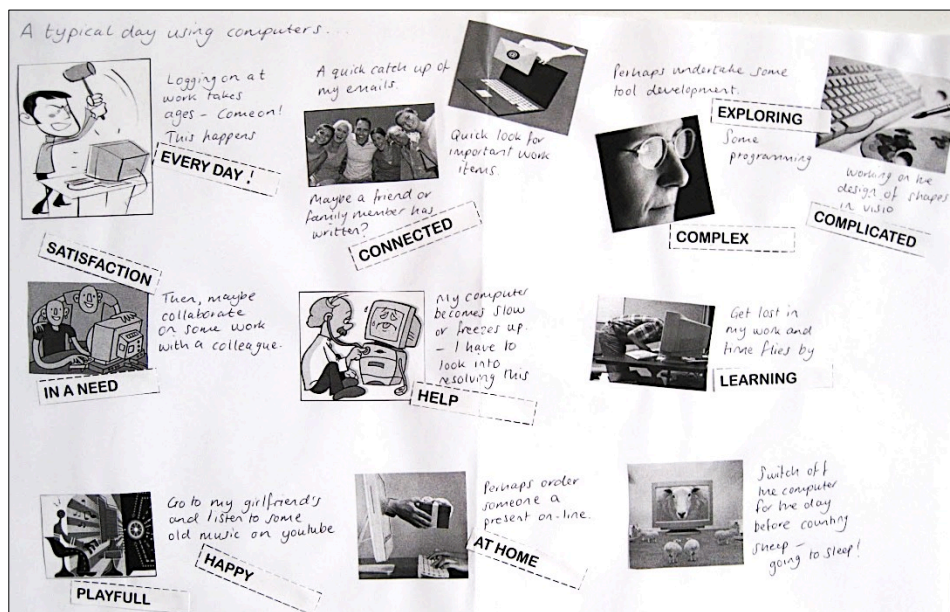 A typical day using computers...
Logging on at
work takes
ages - comeon!
This happens
EVERY DAY !
A quick catch up of
my emails.
Maybe a friend or
family member has
written?
CONNECTED
Quick look for
important work
items.
Perhaps undertake some
tool development.
EXPLORING
Some
programming
COMPLEX
Working on the
design of shapes
in visio
COMPLICATED
SATISFACTION
Then, maybe
collaborate
on some work
with a colleague.
IN A NEED
My computer
becomes slow
or freezes up.
- I have to
look into
resolving this
HELP
Get lost in
my work and
time flies by
LEARNING
Go to my girlfriend's
and listen to some
old music on youtube
HAPPY
PLAYFULL
Perhaps order
someone a
present on-line.
AT HOME
Switch off
the computer
for the day
before counting
sheep -
going to sleep!